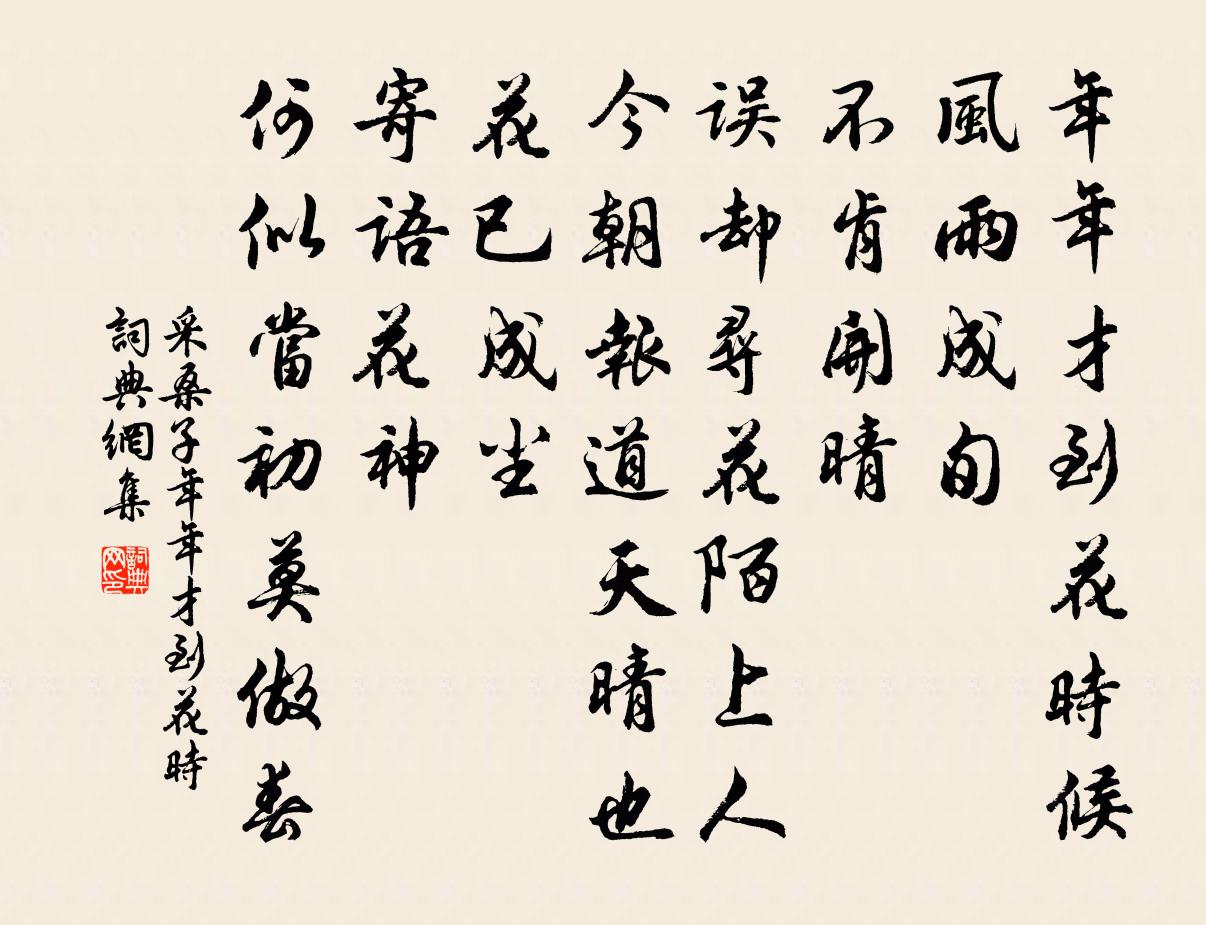 年年才到花時候
風雨成旬
不肯開晴
误却尋花陌上人
今朝報道天晴也
花已成尘
寄語花神
何似當初莫做春
采桑子年年才到花時
詞典網集
詞典网印